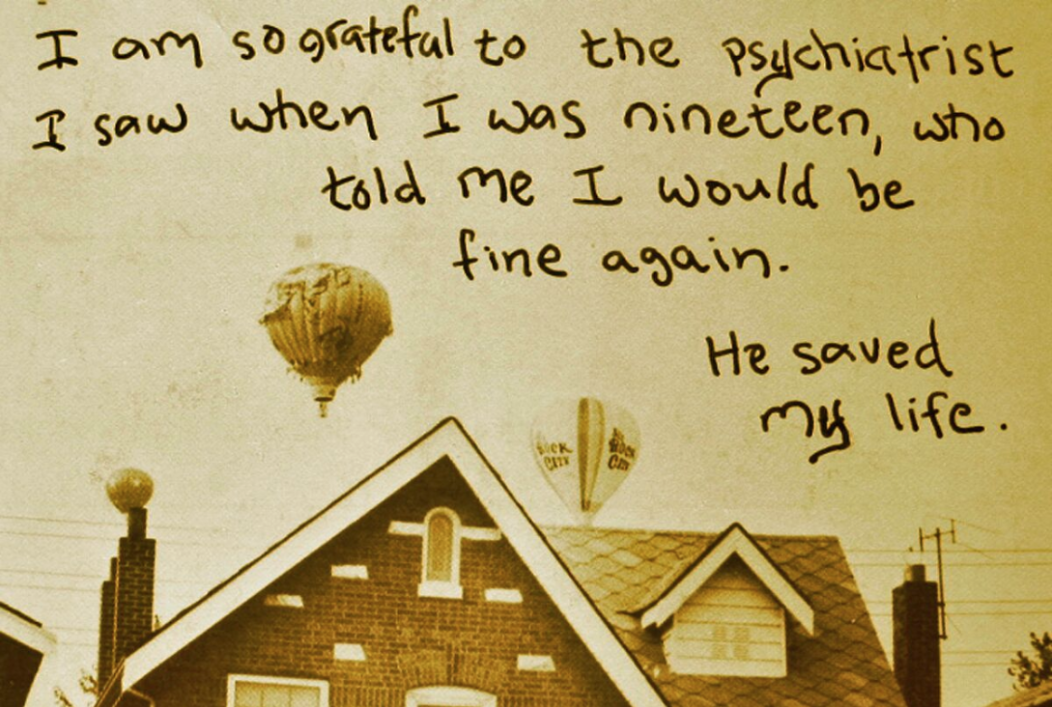 I am so grateful to the psychiatrist
I saw when I was nineteen, who
told me I would be
fine again.
He saved
my life.
ROCK
CITY
ROCK
CITY